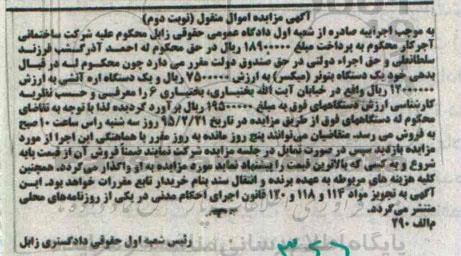 آگهی مزایده اموال منقول (نوبت دوم)
به موجب اجراییه صادره از شعبه اول دادگاه عمومی حقوقی زابل محکوم علیه شرکت ساختمانی
آجرکار محکوم به پرداخت مبلغ ۱۸۹۰۰۰۰۰ ریال در حق محکوم له احمد آذرگشب فرزند
سلطانعلی و حق اجراء دولتی در حق صندوق دولت مقرر می دارد چون محکوم له در قبال
بدهی خود یک دستگاه بتونر (میکسر) به ارزش ۷۵۰۰۰۰۰ ریال و یک دستگاه اره آتشی به ارزش
۱۲۰۰۰۰۰۰ ریال واقع در خیابان آیت الله بختیاری، بختیاری ۶ را معرفی و حسب نظریه
کارشناسی ارزش دستگاههای فوق به مبلغ ۱۹۵۰۰۰۰۰ ریال برآورد گردیده لذا با توجه به تقاضای
محکوم له دستگاههای فوق از طریق مزایده در تاریخ ۹۵/۲/۲۱ روز سه شنبه راس ساعت ۱۰ صبح
به فروش می رسد. متقاضیان می‌توانند پنج روز مانده به روز مقرر با هماهنگی این اجرا از مورد
مزایده بازدید سپس در صورت تمایل در جلسه مزایده شرکت نمایند ضمناً فروش آن از قیمت پایه
شروع و به کسی که بالاترین قیمت را پیشنهاد نماید مورد مزایده به او واگذار می‌گردد. همچنین
کلیه هزینه های مربوطه به عهده برنده و انتقال سند بنام خریدار تابع مقررات خواهد بود. این
آگهی به تجویز مواد ۱۱۴ و ۱۱۸ و ۱۲۰ قانون اجرای احکام مدنی در یکی از روزنامه‌های محلی
منتشر می‌گردد.
م‌الف ۲۹۰
رئیس شعبه اول حقوقی دادگستری زابل